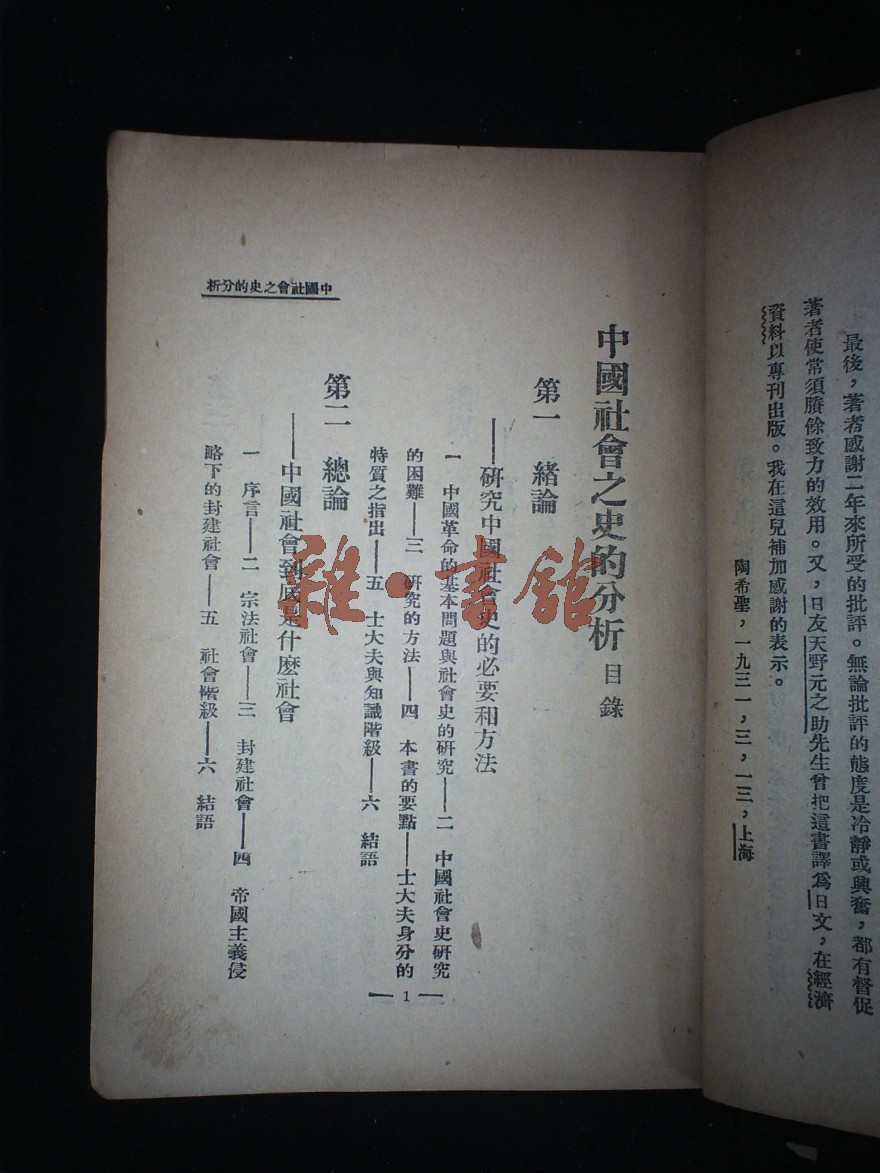 最後，著者感謝二年來所受的批評。無論批評的態度是冷靜或興奮，都有督促
著者使常須賡餘致力的效用。又，日友天野元之助先生曾把這書譯爲日文，在經濟
資料以專刊出版。我在這兒補加感謝的表示。
陶希聖，一九三一，三，一三，上海
中國社會之史的分析
中國社會之史的分析 目錄
第一 緒論
——研究中國社會史的必要和方法
一 中國革命的基本問題與社會史的研究——二 中國社會史研究
的困難——三 研究的方法——四 本書的要點——士大夫身分的
特質之指出——五 士大夫與知識階級——六 結語
第二 總論
——中國社會到底是什麼社會
一 序言——二 宗法社會——三 封建社會——四 帝國主義侵
略下的封建社會——五 社會階級——六 結語
— 1 —
雜·書館